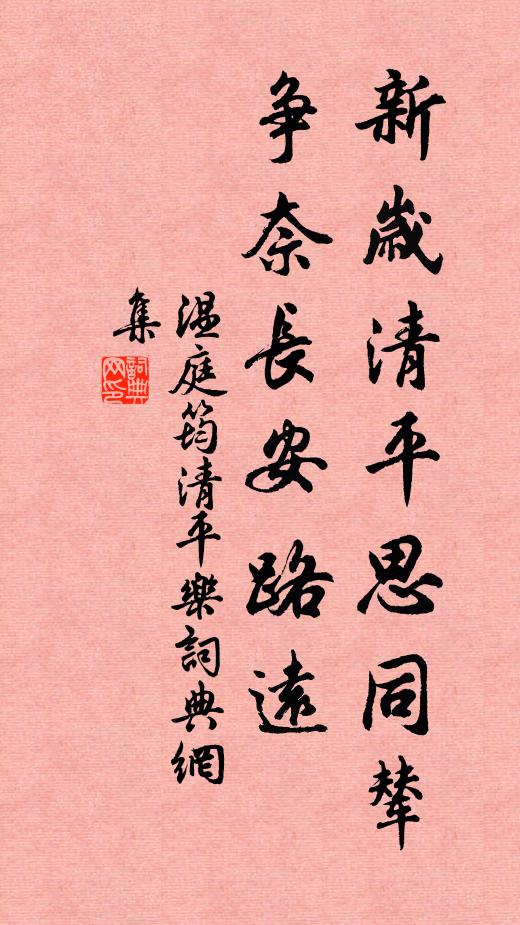 新歲清平思同輦
爭奈長安路遠
溫庭筠清平樂詞典網
集
詞典網印